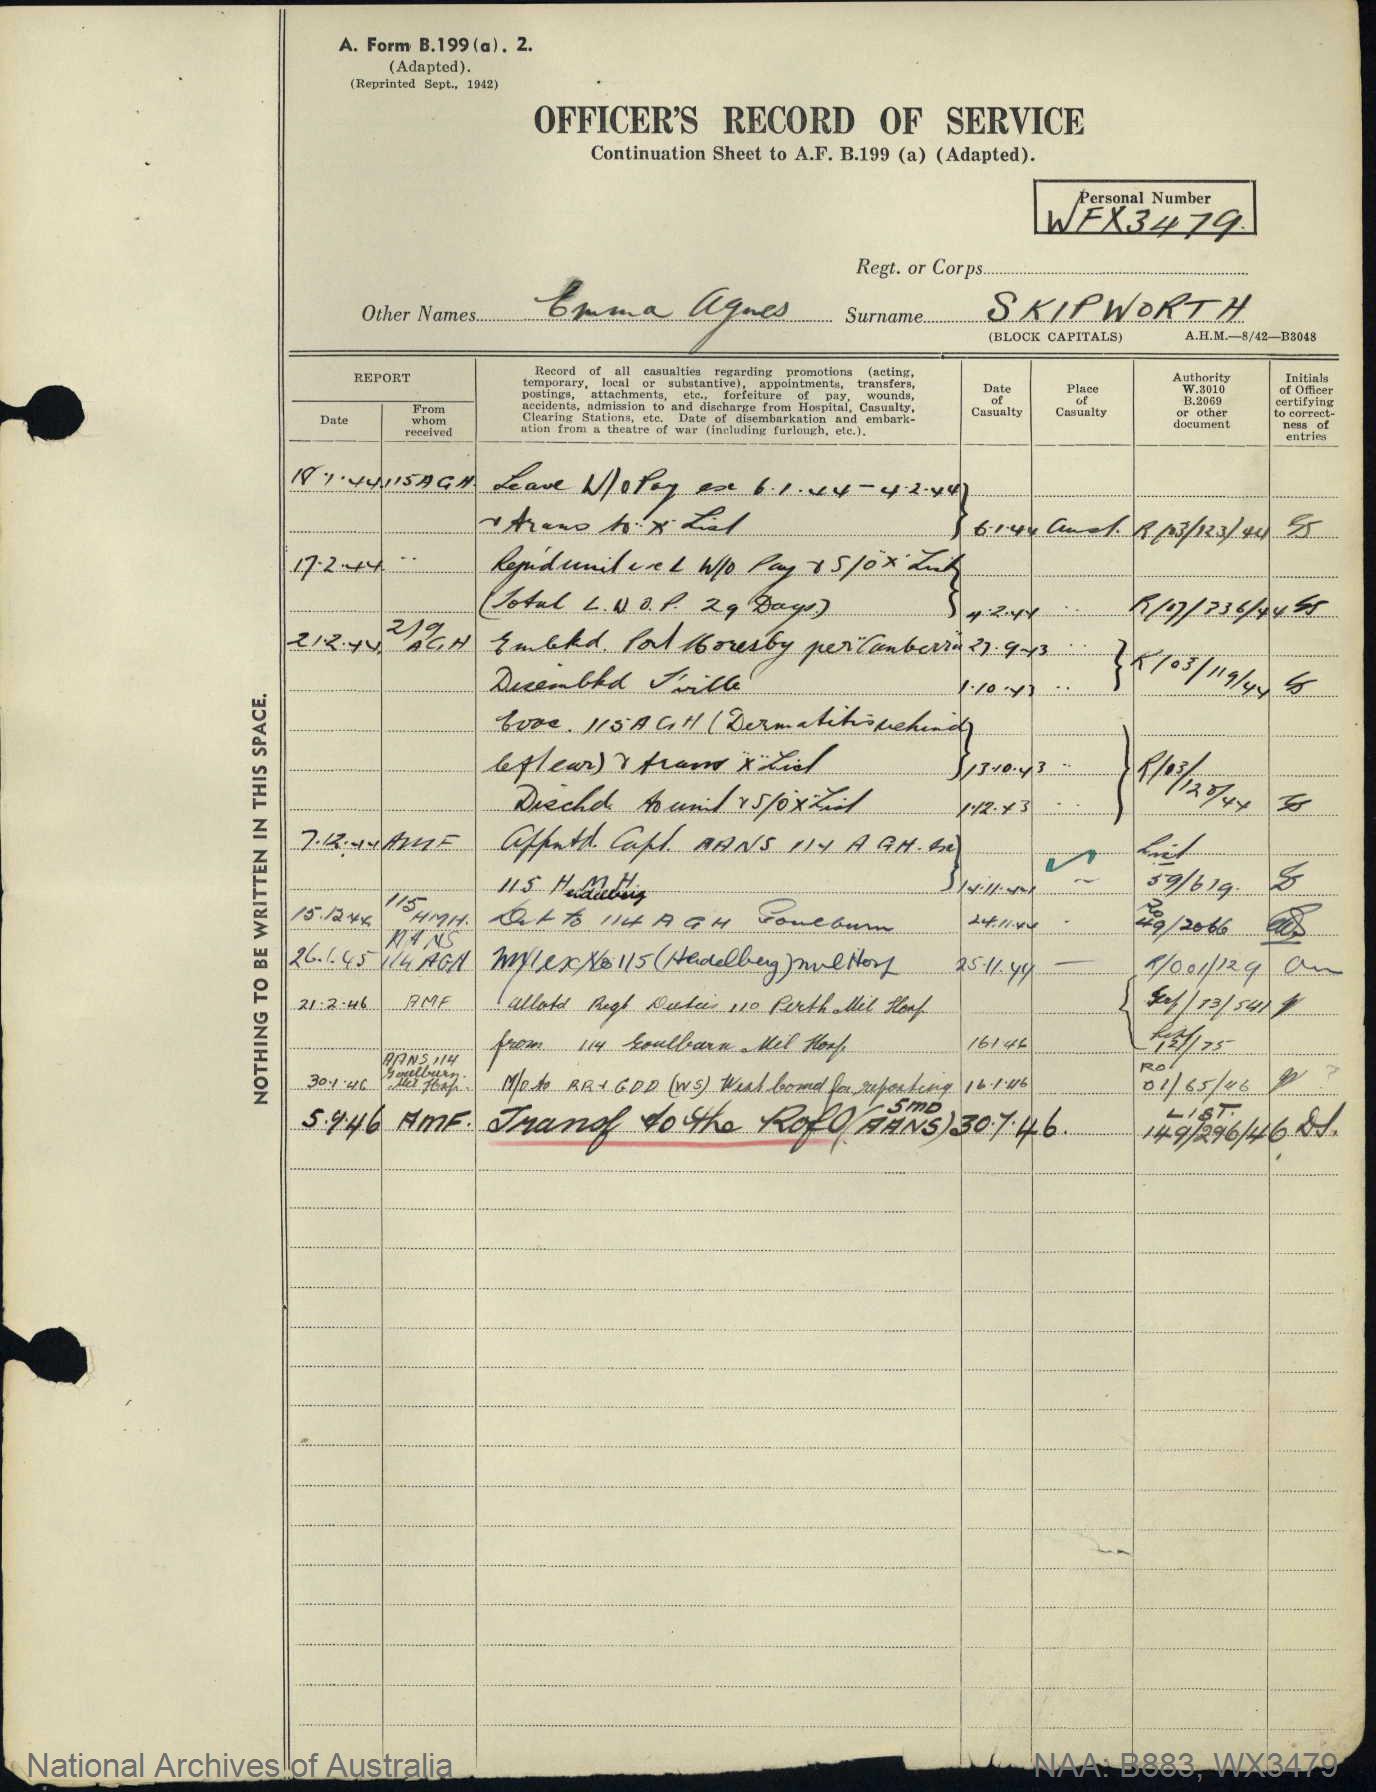 A. Form B.199(a). 2.
(Adapted).
(Reprinted Sept., 1942)
OFFICER'S RECORD OF SERVICE
Continuation Sheet to A.F. B.199 (a) (Adapted).
Personal Number
WFX3479.
Regt. or Corps
Other Names Emma Agnes Surname SKIPWORTH
(BLOCK CAPITALS) A.H.M.—8/42—B3048
REPORT
Date
From whom received
Record of all casualties regarding promotions (acting, temporary, local or substantive), appointments, transfers, postings, attachments, etc., forfeiture of pay, wounds, accidents, admission to and discharge from Hospital, Casualty, Clearing Stations, etc. Date of disembarkation and embarkation from a theatre of war (including furlough, etc.).
Date of Casualty
Place of Casualty
Authority W.3010 B.2069 or other document
Initials of Officer certifying to correctness of entries
18.1.44 115 AGH. Leave W/o Pay ex 6.1.44 – 4.2.44
& trans to X List 6.1.44 Aust. R/03/123/44
17.2.44 " Rejd unit ex L W/o Pay & S/O "X" List
(Total L.W.O.P. 29 Days) 4.2.44 " R/07/236/44
21.2.44 2/9 AGH Embkd. Port Moresby per "Canberra" 27.9.43 " R/03/119/44
Disembkd T'ville 1.10.43 "
Evac. 115 AGH (Dermatitis behind
left ear) & trans "X" List 13.10.43 " R/03/120/44
Dischd to unit & S/O "X" List 1.12.43 "
7.12.44 AMF Appntd. Capt. AANS 114 AGH. List
115 HMH Heidelberg 14.11.44 59/619.
15.12.44 115 HMH. Det to 114 AGH Goulburn 24.11.44 RO 49/2066
26.1.45 AANS 114 AGH M/I ex No 115 (Heidelberg) Mil Hosp 25.11.44 — R/001/129
21.2.46 AMF allotd Regt Duties 110 Perth Mil Hosp /13/541
from 114 Goulburn Mil Hosp 16 1 46 List 12/75
30.1.46 AANS 114 Goulburn. Mil Hosp. M/o to RR & GDD (WS) West bound for reposting 16.1.46 RO 01/65/46
5.9.46 AMF. Transf to the R of O (AANS) 5MD 30.7.46. LIST. 149/296/46 DS.
NOTHING TO BE WRITTEN IN THIS SPACE.
National Archives of Australia NAA: B883, WX3479